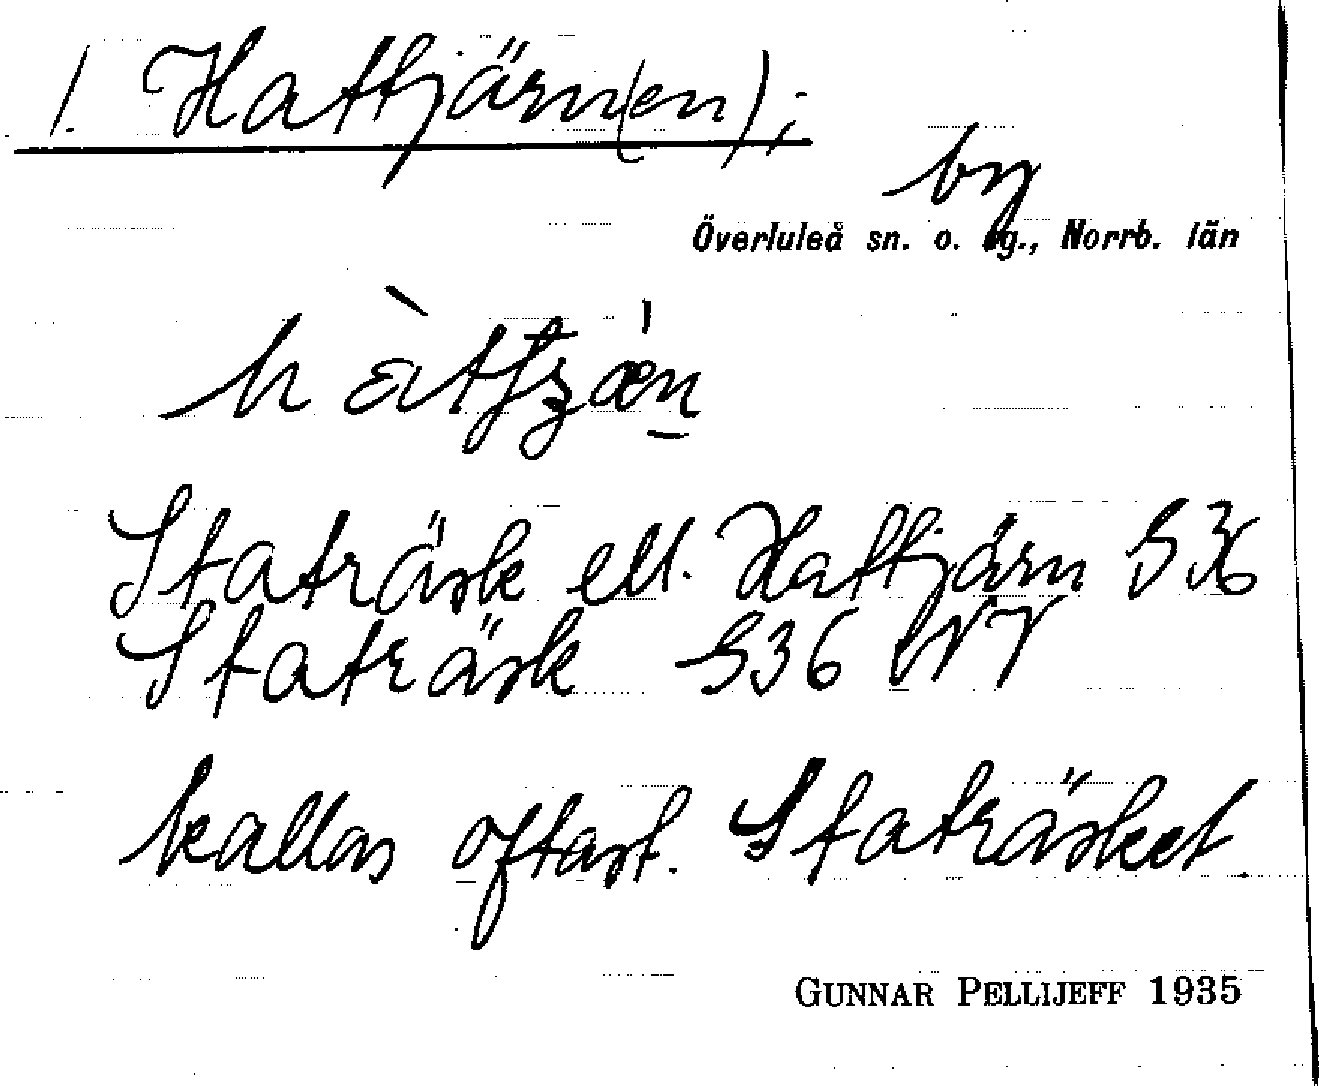 1. Hattjärn(en);
by
Överluleå sn. o. tg., Norrb. län
Staträsk ell. Hattjärn S36
Staträsk S36 NV
kallas oftast. Staträsket.
GUNNAR PELLIJEFF 1935